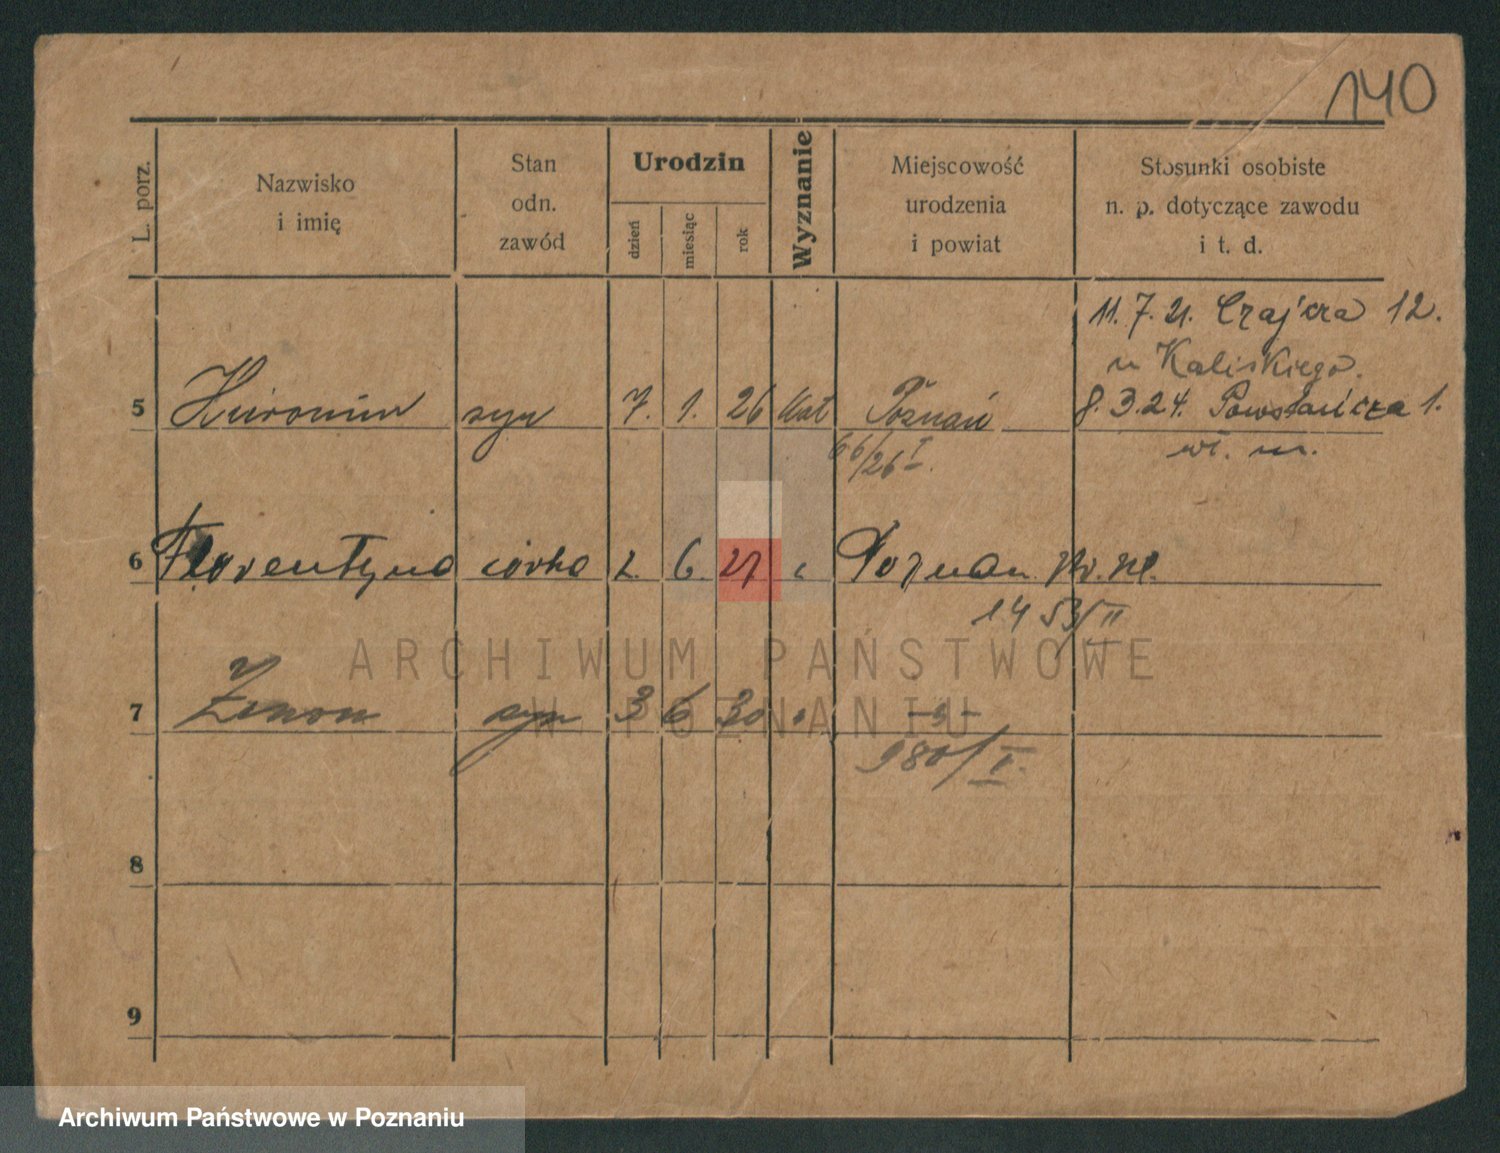 140
L. porz.
Nazwisko
i imię
Stan
odn.
zawód
Urodzin
dzień
miesiąc
rok
Wyznanie
Miejscowość
urodzenia
i powiat
Stosunki osobiste
n. p. dotyczące zawodu
i t. d.
11.7.21. Czajcza 12.
u Kaliskiego.
5 Hieronim syn 7. 1. 26 kat Poznań 8.3.24. Powstańcza 1.
66/26 I.
wł. m.
6 Florentyna córka 2. 6. 27 c Poznan
1453/II
7 Zenon syn 3 6 30 " -"-
980/I.
8
9
ARCHIWUM PAŃSTWOWE
W POZNANIU
Archiwum Państwowe w Poznaniu